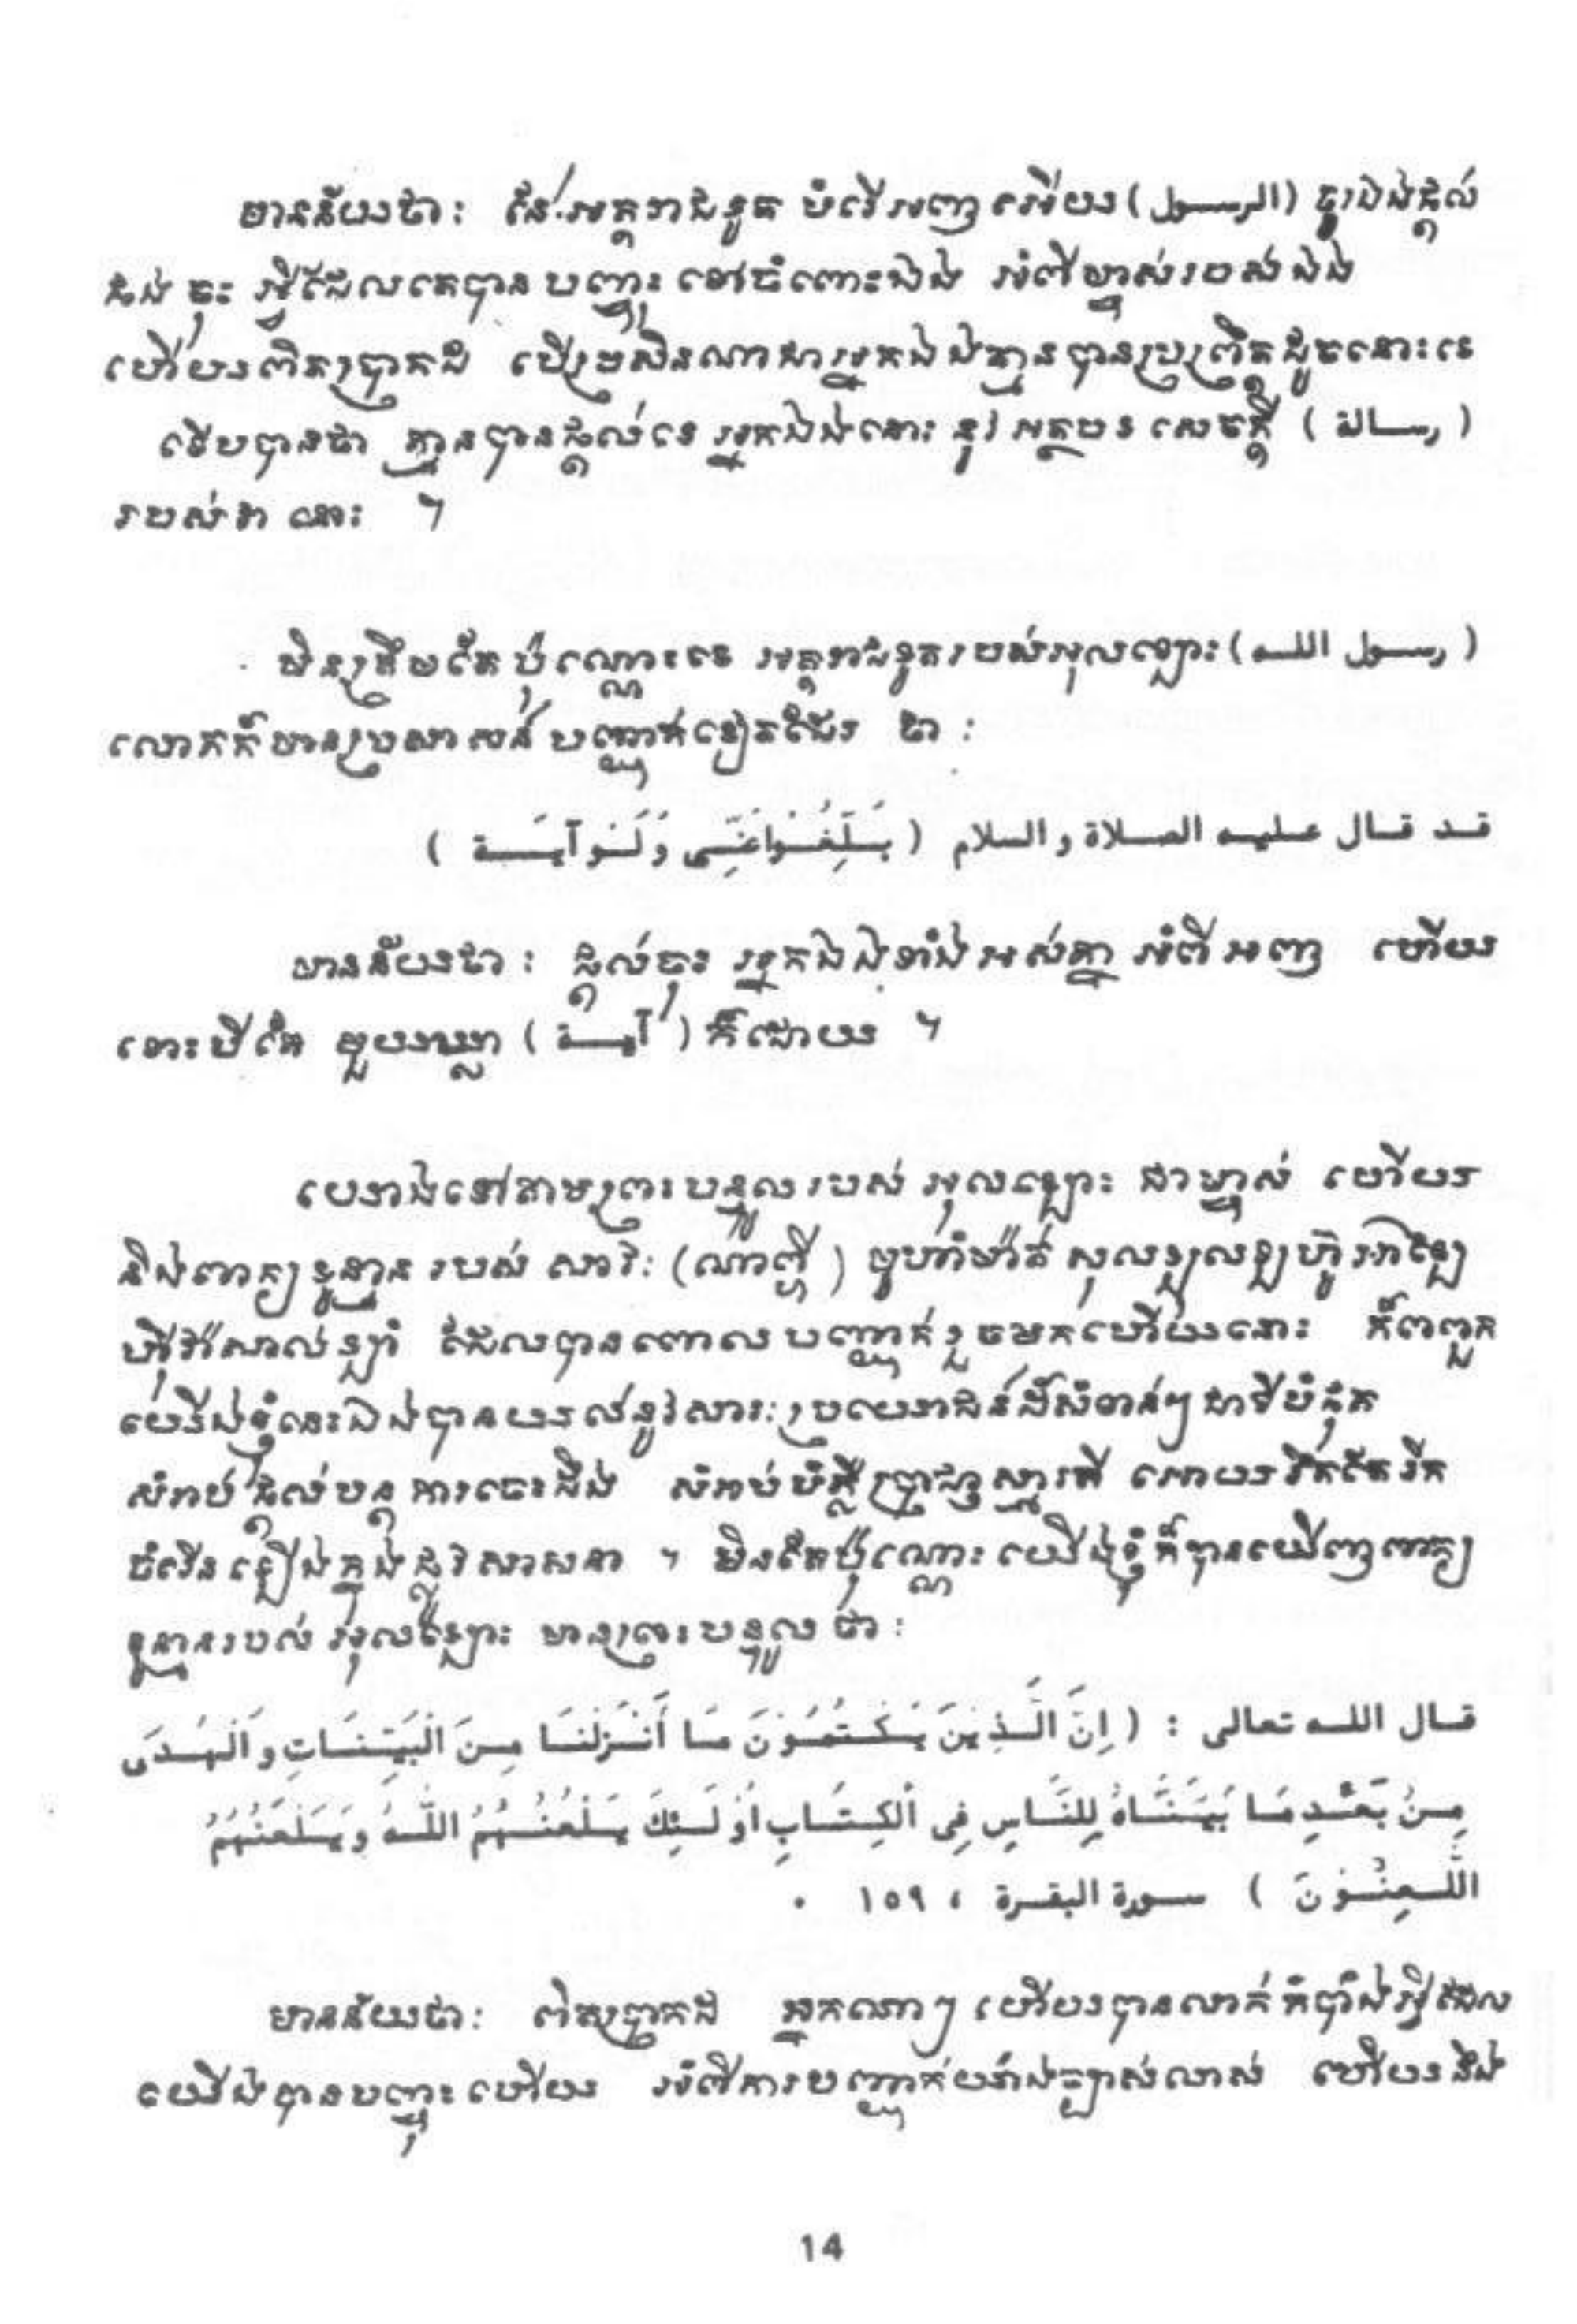 មានន័យថា: នែ៎.អគ្គរាជទូត បំរើអញ អើយ (الرسول) ចូរឯងផ្តល់
ដំណឹង ចុះ អ្វីដែលគេបានបញ្ចុះ ទៅចំពោះឯង អំពីម្ចាស់របស់ឯង
ហើយពិតប្រាកដ បើប្រសិនណាជាអ្នកឯងគ្មានបានប្រព្រឹត្តដូចនោះទេ
ទើបបានថា គ្មានបានផ្តល់ទេ អ្នកឯងនោះ នូវ អត្ថបទ សេចក្តី ( رسالة )
របស់វា នោះ ។
មិនត្រឹមតែប៉ុណ្ណោះទេ អគ្គរាជទូតរបស់អុលឡោះ ( رسول اللـه )
លោកក៏មានប្រសាសន៍ បញ្ជាក់ទៀតដែរ ថា :
قد قال عليه الصلاة والسلام ( بَلِّغُوا عَنِّي وَلَوْ آيَة )
មានន័យថា : ផ្តល់ចុះ អ្នកឯងទាំងអស់គ្នា អំពីអញ ហើយ
ទោះបីតែ មួយឃ្លា ( آيـة ) ក៏ដោយ ។
យោងទៅតាមព្រះបន្ទូលរបស់ អុលឡោះ ជាម្ចាស់ ហើយ
និងពាក្យទូន្មាន របស់ សារ៉ៈ (ណាពី ) មូហាំម៉ាត់ សុលឡលឡហ៊ូ អាឡៃ
ហ៊ីវ៉ាសាល់ឡាំ ដែលបានពោល បញ្ជាក់រួចមកហើយនោះ ក៏ពពួក
យើងខ្ញុំនេះឯងបានយល់នូវសារៈប្រយោជន៍ដ៏សំខាន់ៗជាទីបំផុត
សំរាប់ផ្តល់បន្តការចេះដឹង សំរាប់បំភ្លឺប្រាជ្ញាស្មារតី អោយរឹតតែរីក
ចំរើនឡើងក្នុងផ្លូវសាសនា ។ មិនតែប៉ុណ្ណោះ យើងខ្ញុំក៏បានឃើញពាក្យ
ទូន្មានរបស់ អុលឡោះ មានព្រះបន្ទូល ថា :
قال اللـه تعالى : ( إِنَّ الَّذِينَ يَكْتُمُوْنَ مَا أَنْزَلْنَا مِنَ الْبَيِّنَاتِ وَالْهُدَى
مِنْ بَعْدِ مَا بَيَّنَّاهُ لِلنَّاسِ فِي الْكِتَابِ أُوْلَئِكَ يَلْعَنُهُمُ اللَّهُ وَيَلْعَنُهُمُ
اللَّعِنُوْنَ ) سورة البقرة ، ١٥٩ .
មានន័យថា: ពិតប្រាកដ អ្នកណាៗ ហើយបានលាក់កំបាំងអ្វីដែល
យើងបានបញ្ចុះហើយ អំពីការបញ្ជាក់យ៉ាងច្បាស់លាស់ ហើយនឹង
14